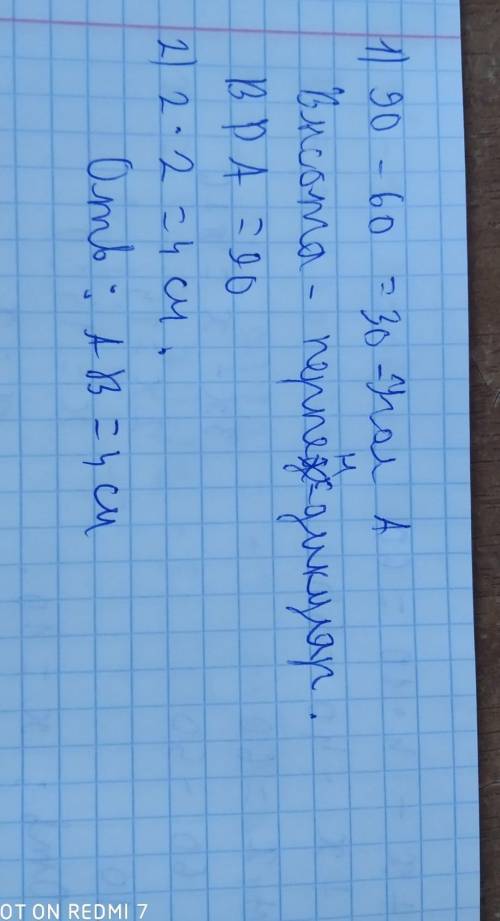 1) 90 - 60 = 30 = Угол А
Высота - перпен-дикуляр.
В Р А = 90
2) 2 · 2 = 4 см.
Отв: АВ = 4 см
OT ON REDMI 7